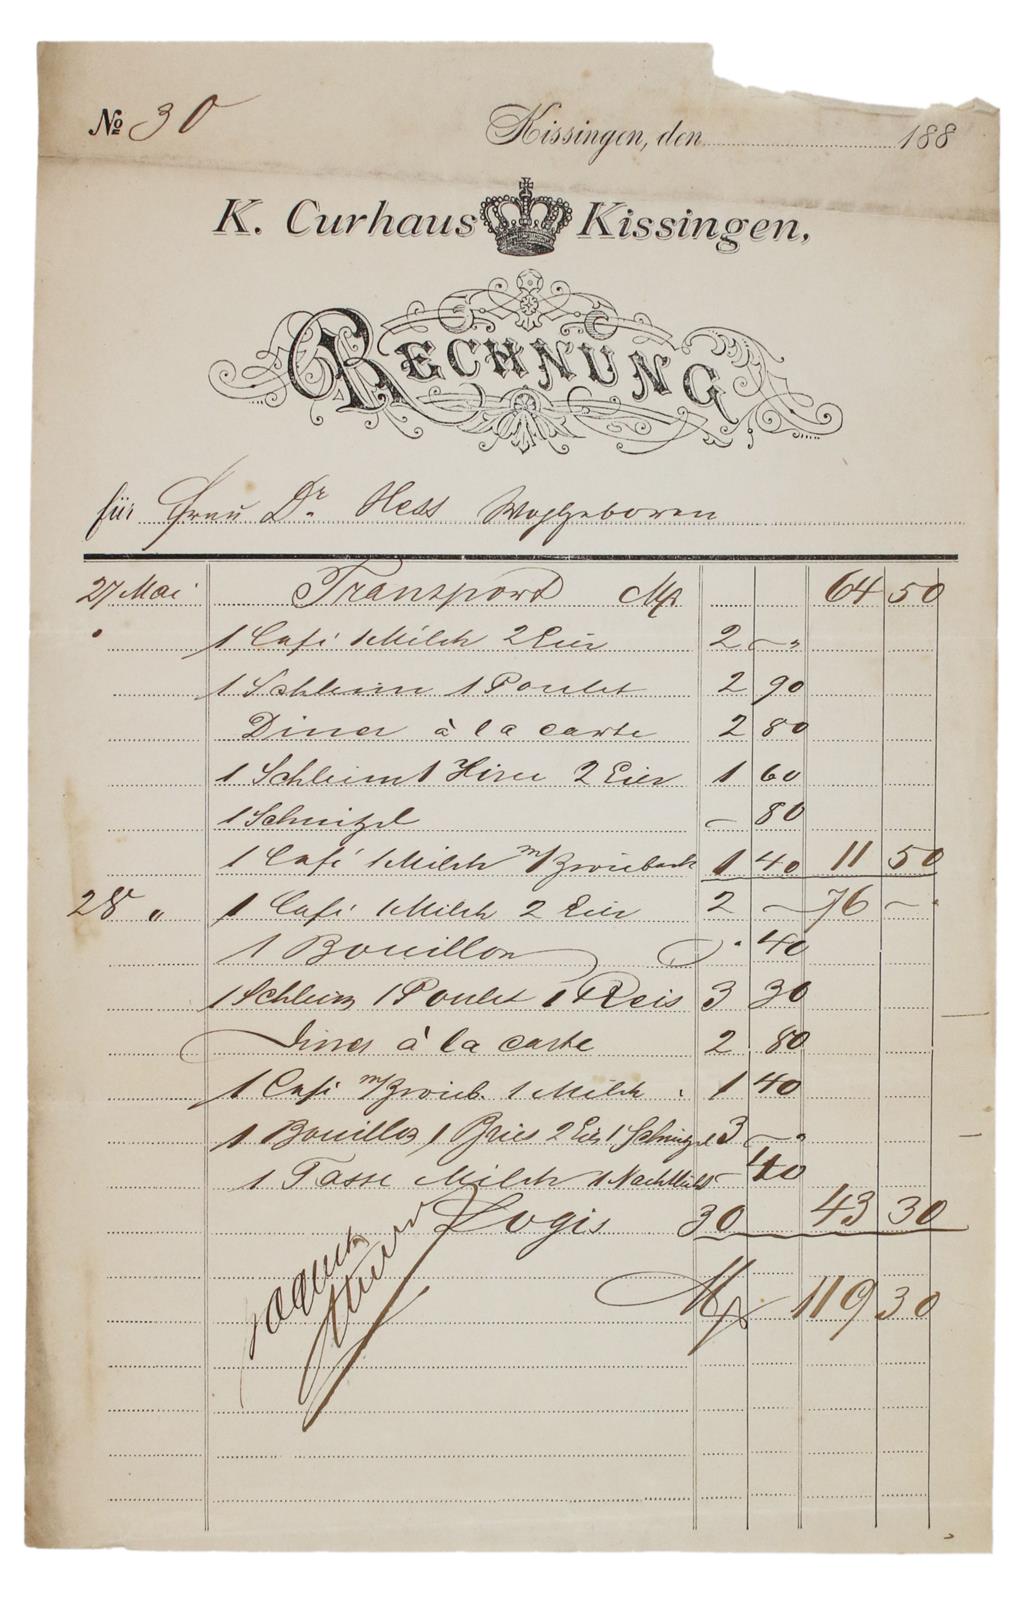 No 30
Kissingen, den 188
K. Curhaus Kissingen,
RECHNUNG
für Frau Dr. Hess Wohlgeboren
27 Mai Transport Mk 64 50
" 1 Café 1 Milch 2 Eier 2 — "
1 Schleim 1 Poulet 2 90
Diner à la carte 2 80
1 Schleim 1 2 Eier 1 60
1 Schnitzel — 80
1 Café 1 Milch m/Zwieback 1 40 11 50
28 " 1 Café 1 Milch 2 Eier 2 — 76 —
1 Bouillon " 40
1 Schleim 1 Poulet 1 Reis 3 30
Diner à la carte 2 80
1 Café m/Zwieb. 1 Milch 1 40
1 Bouillon 1 Bries 2 Eier 1 Schnitzel 3 — "
1 Tasse Milch 1 Nachtlicht — 40
Logis 30 43 30
Mk 119 30